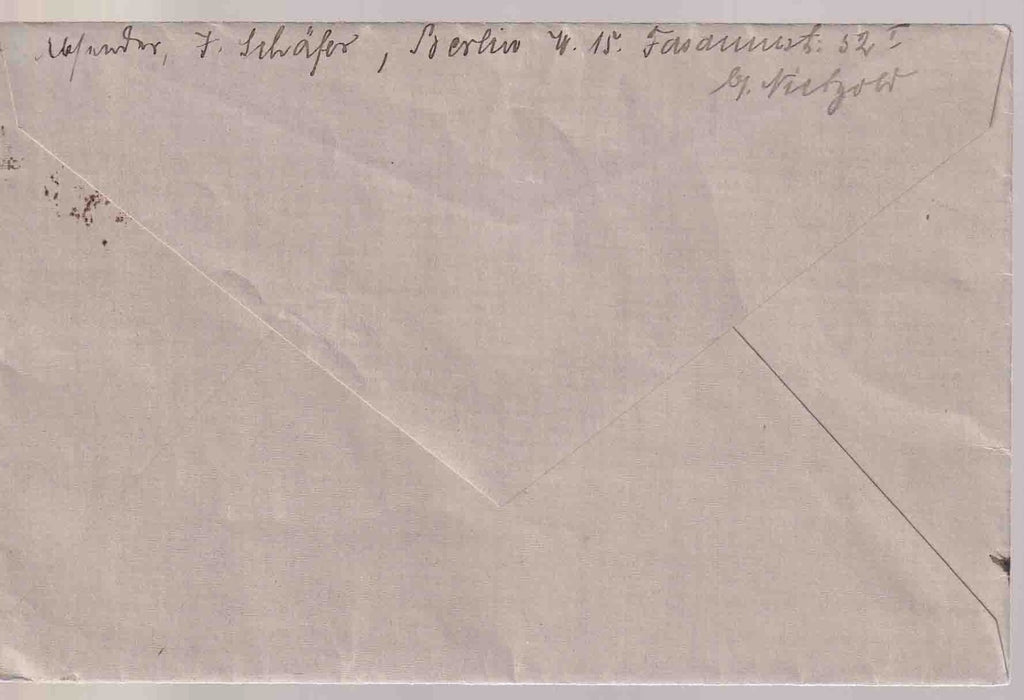 Absender, F. Schäfer, Berlin W. 15. Fasanenstr. 52 I
b/. Nietzold